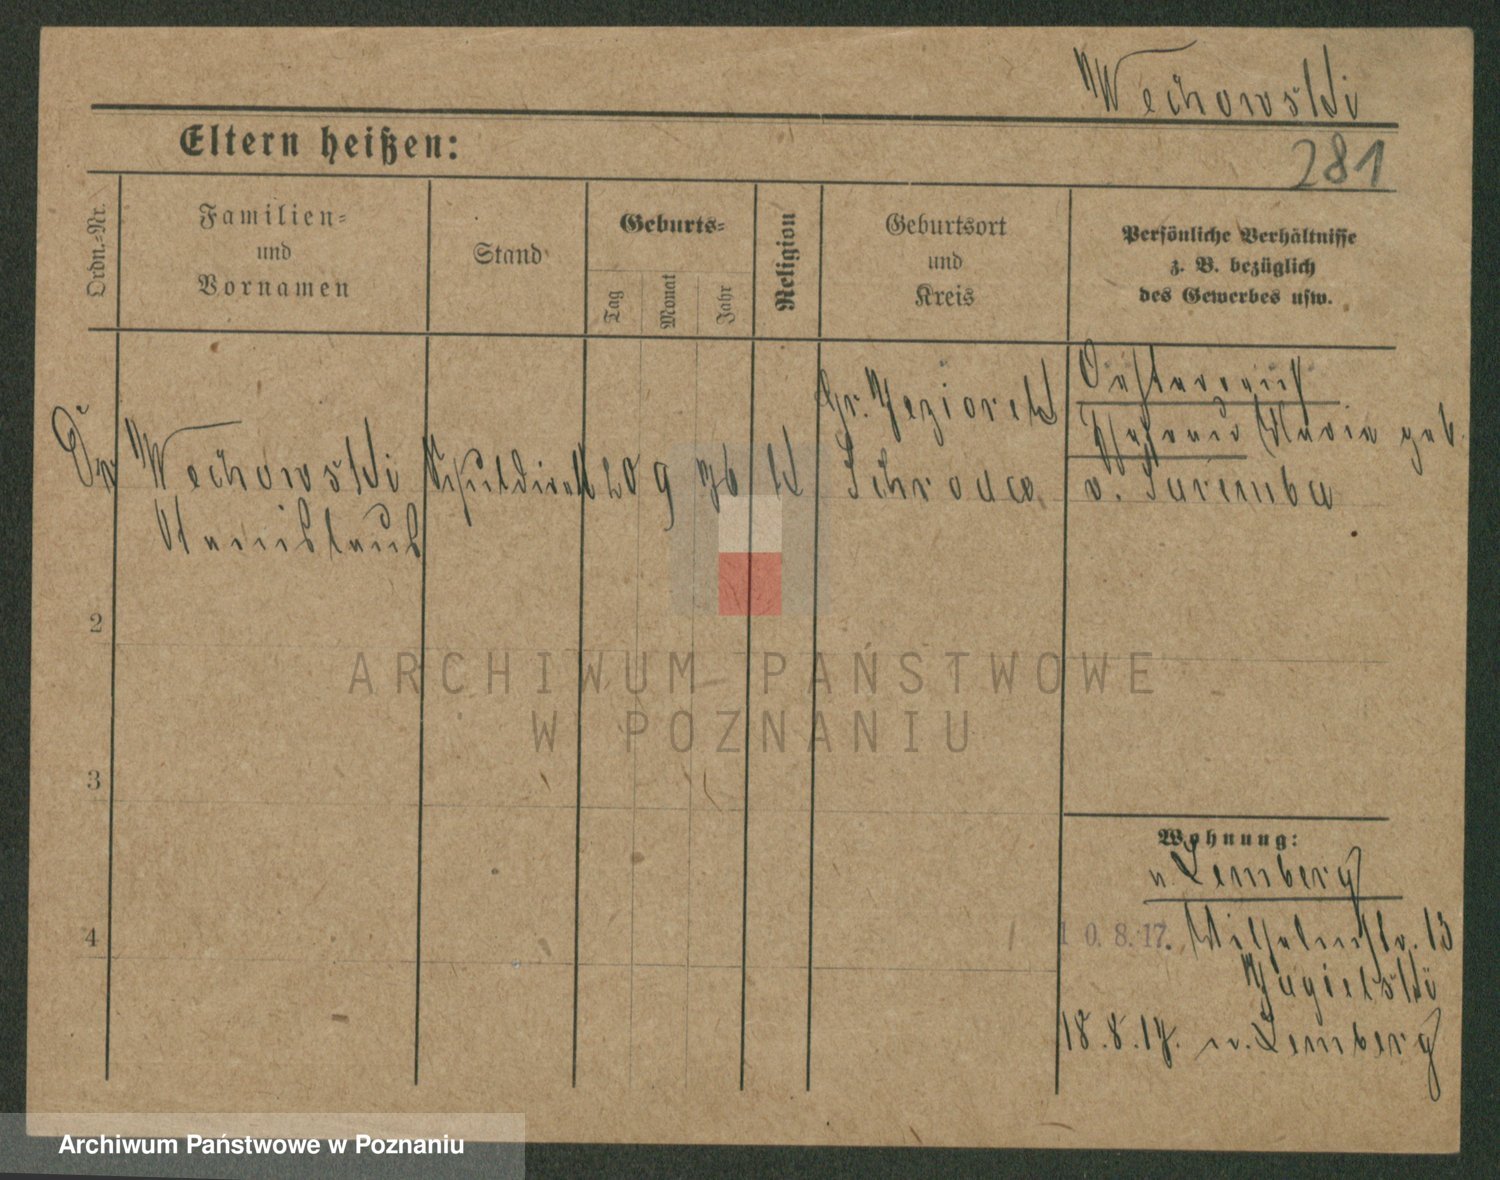 Wechowski
Eltern heißen:
281
Ordn.-Nr.
Familien-
und
Vornamen
Stand
Geburts-
Tag
Monat
Jahr
Religion
Geburtsort
und
Kreis
Persönliche Verhältnisse
z. B. bezüglich
des Gewerbes usw.
Dr
Wechowski
Stanislaus
Schuldirekt
20 9 76 k
Gr. Jeziorek
Schroda
Oesterreich
Ehefrau Maria geb.
v. Zaremba
2
3
4
Wohnung:
v. Lemberg
10. 8. 17. Wilhelmstr. 13
Jagielski
18. 8. 17. n. Lemberg
ARCHIWUM PAŃSTWOWE
W POZNANIU
Archiwum Państwowe w Poznaniu